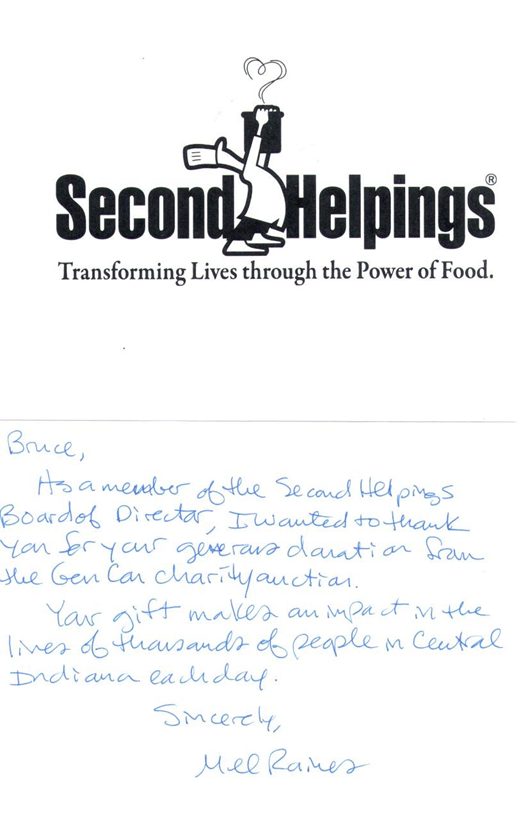 Second Helpings®
Transforming Lives through the Power of Food.
Bruce,
As a member of the Second Helpings
Board of Director, I wanted to thank
you for your generous donation from
the Gen Con charity auction.
Your gift makes an impact in the
lives of thousands of people in Central
Indiana each day.
Sincerely,
Mel Raines